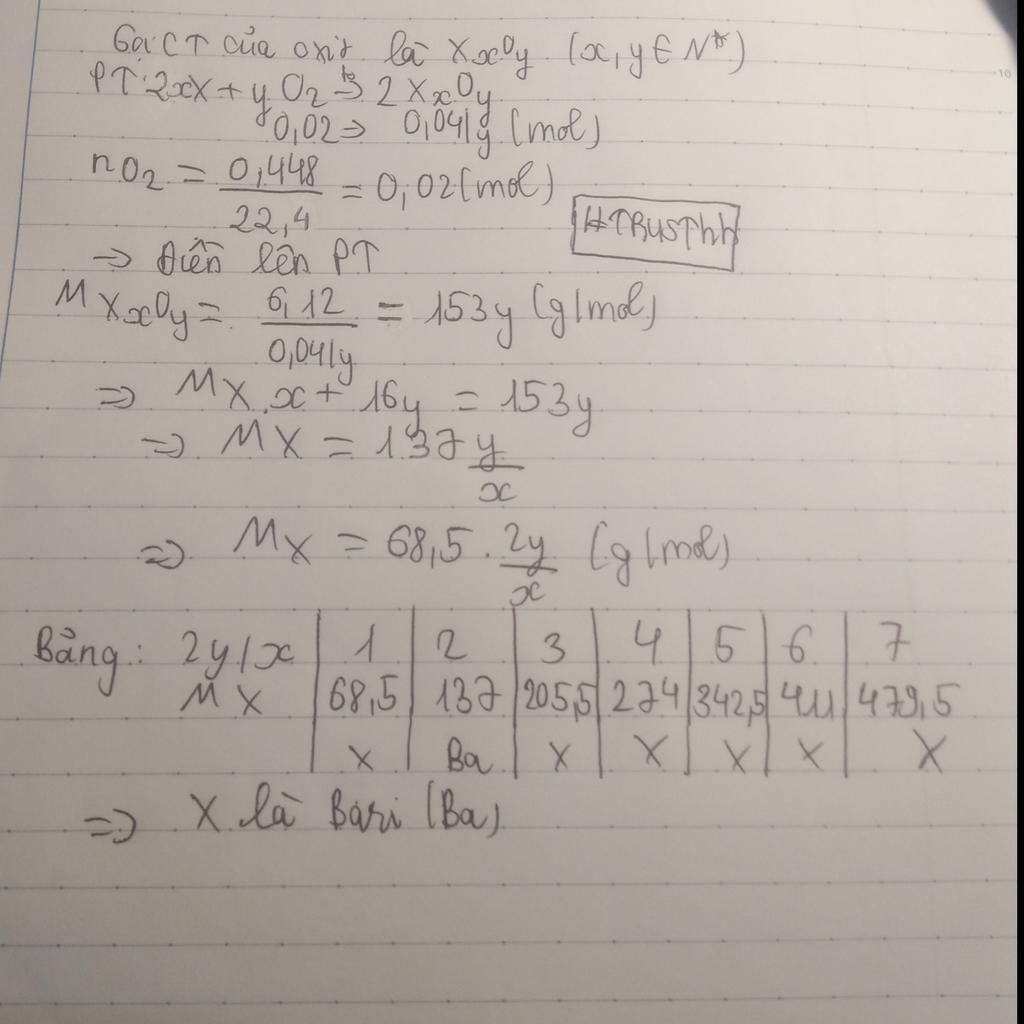 Gọi CT của oxit là XxOy (x, y ∈ N*)
PT: 2xX + yO2 →t° 2XxOy
0,02 → 0,04/y (mol)
nO2 = 0,448/22,4 = 0,02 (mol)
#TRUSThh
=> Điền lên PT
M XxOy = 6,12/0,04/y = 153y (g/mol)
=> MX.x + 16y = 153y
=> MX = 137 y/x
=> MX = 68,5 . 2y/x (g/mol)
Bảng: 2y/x | 1 | 2 | 3 | 4 | 5 | 6 | 7
MX | 68,5 | 137 | 205,5 | 274 | 342,5 | 411 | 479,5
X | Ba | X | X | X | X | X
=> X là Bari (Ba)